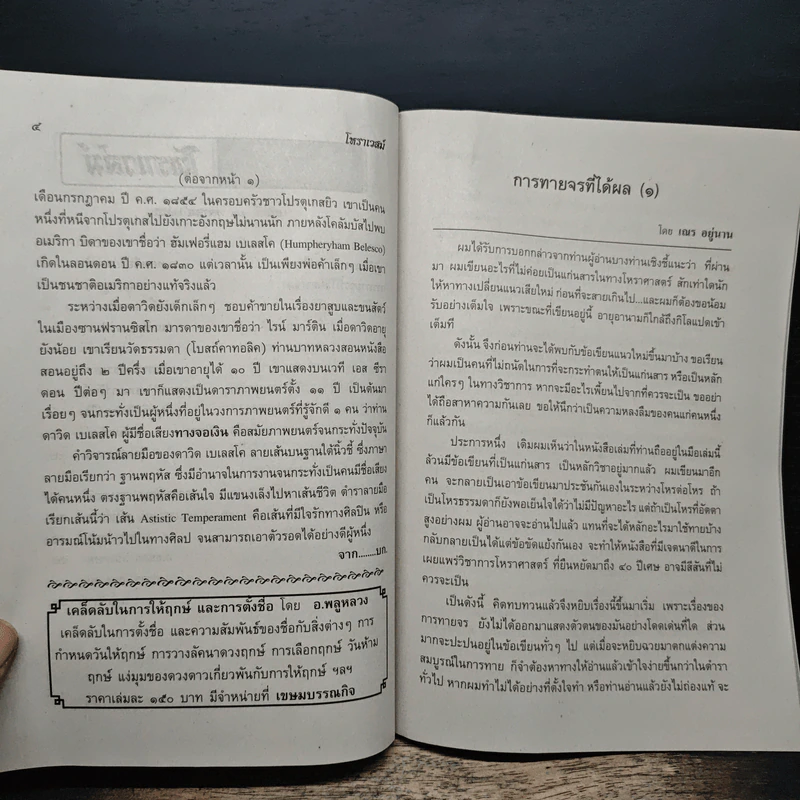 ๔
โหราเวสม์
(ต่อจากหน้า ๑)
เดือนกรกฎาคม ปี ค.ศ. ๑๘๕๔ ในครอบครัวชาวโปรตุเกสยิว เขาเป็นคน
หนึ่งที่หนีจากโปรตุเกสไปยังเกาะอังกฤษไม่นานนัก ภายหลังโคลัมบัสไปพบ
อเมริกา บิดาของเขาชื่อว่า ฮัมเฟอรี่แฮม เบเลสโค (Humpheryham Belesco)
เกิดในลอนดอน ปี ค.ศ. ๑๘๓๐ แต่เวลานั้น เป็นเพียงพ่อค้าเล็กๆ เมื่อเขา
เป็นชนชาติอเมริกาอย่างแท้จริงแล้ว
ระหว่างเมื่อดาวิดยังเด็กเล็กๆ ชอบค้าขายในเรื่องยาสูบและขนสัตว์
ในเมืองซานฟรานซิสโก มารดาของเขาชื่อว่า ไรน์ มาร์ติน เมื่อดาวิดอายุ
ยังน้อย เขาเรียนวัดธรรมดา (โบสถ์คาทอลิค) ท่านบาทหลวงสอนหนังสือ
สอนอยู่ถึง ๒ ปีครึ่ง เมื่อเขาอายุได้ ๑๐ ปี เขาแสดงบนเวที เอส ซีรา
ดอน ปีต่อๆ มา เขาก็แสดงเป็นดาราภาพยนตร์ตั้ง ๑๑ ปี เป็นต้นมา
เรื่อยๆ จนกระทั่งเป็นผู้หนึ่งที่อยู่ในวงการภาพยนตร์ที่รู้จักดี ๑ คน ว่าท่าน
ดาวิด เบเลสโค ผู้มีชื่อเสียงทางจอเงิน คือสมัยภาพยนตร์จนกระทั่งปัจจุบัน
คำวิจารณ์ลายมือของดาวิด เบเลสโค ลายเส้นบนฐานใต้นิ้วชี้ ซึ่งภาษา
ลายมือเรียกว่า ฐานพฤหัส ซึ่งมีอำนาจในการงานจนกระทั่งเป็นคนมีชื่อเสียง
ได้คนหนึ่ง ตรงฐานพฤหัสคือเส้นใจ มีแขนงเล็งไปหาเส้นชีวิต ตำราลายมือ
เรียกเส้นนี้ว่า เส้น Astistic Temperament คือเส้นที่มีใจรักทางศิลปิน หรือ
อารมณ์โน้มน้าวไปในทางศิลป จนสามารถเอาตัวรอดได้อย่างดีผู้หนึ่ง
จาก........บก.
เคล็ดลับในการให้ฤกษ์ และการตั้งชื่อ โดย อ.พลูหลวง
เคล็ดลับในการตั้งชื่อ และความสัมพันธ์ของชื่อกับสิ่งต่างๆ การ
กำหนดวันให้ฤกษ์ การวางลัคนาดวงฤกษ์ การเลือกฤกษ์ วันห้าม
ฤกษ์ แง่มุมของดวงดาวเกี่ยวพันกับการให้ฤกษ์ ฯลฯ
ราคาเล่มละ ๑๕๐ บาท มีจำหน่ายที่ เขษมบรรณกิจ
การทายจรที่ได้ผล (๑)
โดย เณร อยู่นาน
ผมได้รับการบอกกล่าวจากท่านผู้อ่านบางท่านเชิงชี้แนะว่า ที่ผ่าน
มา ผมเขียนอะไรที่ไม่ค่อยเป็นแก่นสารในทางโหราศาสตร์ สักเท่าใดนัก
ให้หาทางเปลี่ยนแนวเสียใหม่ ก่อนที่จะสายเกินไป...และผมก็ต้องขอน้อม
รับอย่างเต็มใจ เพราะขณะที่เขียนอยู่นี้ อายุอานามก็ใกล้ถึงกิโลแปดเข้า
เต็มที
ดังนั้น จึงก่อนท่านจะได้พบกับข้อเขียนแนวใหม่ขึ้นมาบ้าง ขอเรียน
ว่าผมเป็นคนที่ไม่ถนัดในการที่จะกระทำตนให้เป็นแก่นสาร หรือเป็นหลัก
แก่ใครๆ ในทางวิชาการ หากจะมีอะไรเพี้ยนไปจากที่ควรจะเป็น ขออย่า
ได้ถือสาหาความกันเลย ขอให้นึกว่าเป็นความหลงลืมของคนแก่คนหนึ่ง
ก็แล้วกัน
ประการหนึ่ง เดิมผมเห็นว่าในหนังสือเล่มที่ท่านถืออยู่ในมือเล่มนี้
ล้วนมีข้อเขียนที่เป็นแก่นสาร เป็นหลักวิชาอยู่มากแล้ว ผมเขียนมาอีก
คน จะกลายเป็นเอาข้อเขียนมาประชันกันเองในระหว่างโหรต่อโหร ถ้า
เป็นโหรธรรมดาก็ยังพอเย็นใจได้ว่าไม่มีปัญหาอะไร แต่ถ้าเป็นโหรที่อัตตา
สูงอย่างผม ผู้อ่านอาจจะอ่านไปแล้ว แทนที่จะได้หลักอะไรมาใช้ทายบ้าง
กลับกลายเป็นได้แต่ข้อขัดแย้งกันเอง จะทำให้หนังสือที่มีเจตนาดีในการ
เผยแพร่วิชาการโหราศาสตร์ ที่ยืนหยัดมาถึง ๔๐ ปีเศษ อาจมีสีสันที่ไม่
ควรจะเป็น
เป็นดังนี้ คิดทบทวนแล้วจึงหยิบเรื่องนี้ขึ้นมาเริ่ม เพราะเรื่องของ
การทายจร ยังไม่ได้ออกมาแสดงตัวตนของมันอย่างโดดเด่นที่ใด ส่วน
มากจะปะปนอยู่ในข้อเขียนทั่วๆ ไป แต่เมื่อจะหยิบฉวยมาตกแต่งความ
สมบูรณ์ในการทาย ก็จำต้องหาทางให้อ่านแล้วเข้าใจง่ายขึ้นกว่าในตำรา
ทั่วไป หากผมทำไม่ได้อย่างที่ตั้งใจทำ หรือท่านอ่านแล้วยังไม่ถ่องแท้ จะ